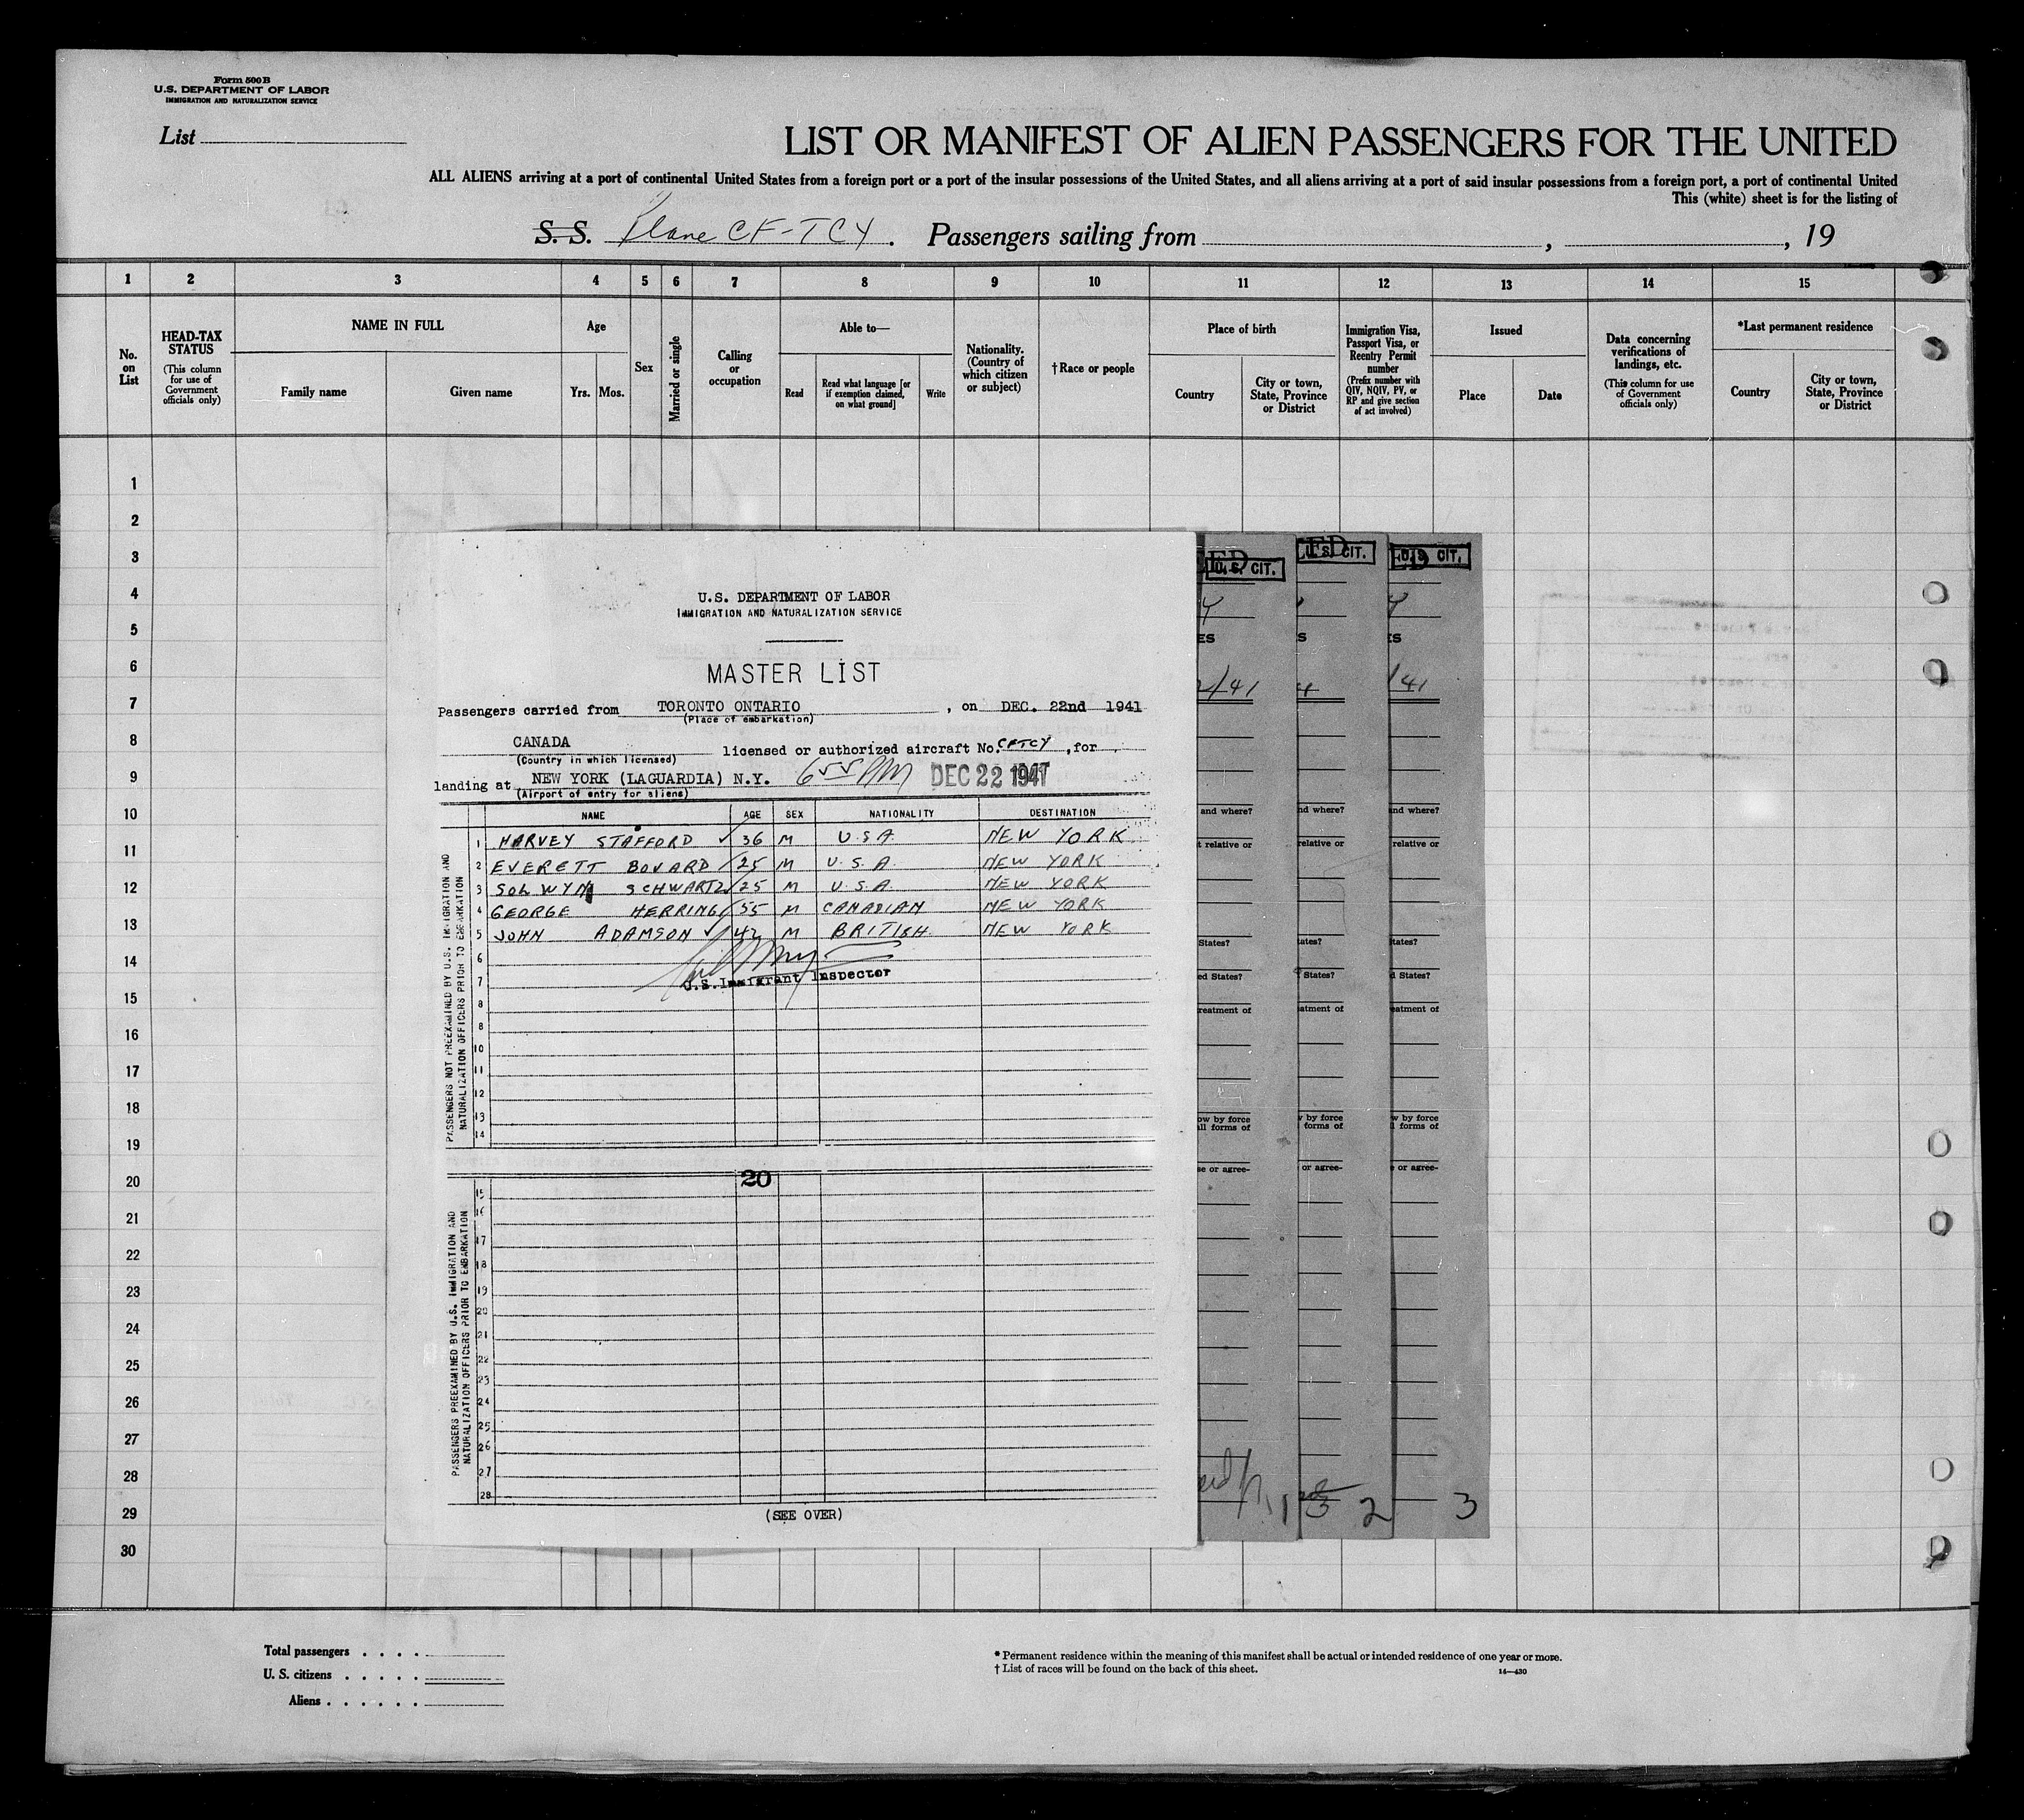 Form 500 B
U.S. DEPARTMENT OF LABOR
IMMIGRATION AND NATURALIZATION SERVICE
List
LIST OR MANIFEST OF ALIEN PASSENGERS FOR THE UNITED
ALL ALIENS arriving at a port of continental United States from a foreign port or a port of the insular possessions of the United States, and all aliens arriving at a port of said insular possessions from a foreign port, a port of continental United
This (white) sheet is for the listing of
S. S. Plane CF-TCY. Passengers sailing from , , 19
1 2 3 4 5 6 7 8 9 10 11 12 13 14 15
No. on List
HEAD-TAX STATUS (This column for use of Government officials only)
NAME IN FULL Family name Given name
Age Yrs. Mos.
Sex
Married or single
Calling or occupation
Able to— Read Read what language [or if exemption claimed, on what ground] Write
Nationality. (Country of which citizen or subject)
† Race or people
Place of birth Country City or town, State, Province or District
Immigration Visa, Passport Visa, or Reentry Permit number (Prefix number with QIV, NQIV, PV, or RP and give section of act involved)
Issued Place Date
Data concerning verifications of landings, etc. (This column for use of Government officials only)
*Last permanent residence Country City or town, State, Province or District
1
2
3
4
5
6
7
8
9
10
11
12
13
14
15
16
17
18
19
20
21
22
23
24
25
26
27
28
29
30
U.S. DEPARTMENT OF LABOR
IMMIGRATION AND NATURALIZATION SERVICE
MASTER LIST
Passengers carried from TORONTO ONTARIO , on DEC. 22nd 1941
(Place of embarkation)
CANADA licensed or authorized aircraft No. CFTCY , for
(Country in which licensed)
landing at NEW YORK (LAGUARDIA) N.Y. 655 PM DEC 22 1941
(Airport of entry for aliens)
NAME AGE SEX NATIONALITY DESTINATION
PASSENGERS NOT PREEXAMINED BY U.S. IMMIGRATION AND NATURALIZATION OFFICERS PRIOR TO EMBARKATION
1 HARVEY STAFFORD 36 M U.S.A. NEW YORK
2 EVERETT BOVARD 25 M U.S.A. NEW YORK
3 SOL WYN SCHWARTZ 25 M U.S.A. NEW YORK
4 GEORGE HERRING 55 M CANADIAN NEW YORK
5 JOHN ADAMSON 42 M BRITISH NEW YORK
6
7 U.S. Immigrant Inspector
8
8
10
11
12
13
14
20
PASSENGERS PREEXAMINED BY U.S. IMMIGRATION AND NATURALIZATION OFFICERS PRIOR TO EMBARKATION
15
16
17
18
19
20
21
22
23
24
25
26
27
28
(SEE OVER)
U.S. CIT. U.S. CIT. U.S. CIT.
ES S ES
2/41 /41
and where? nd where? nd where?
t relative or relative or relative or
States? tates? tates?
ed States? States? d States?
reatment of eatment of eatment of
ow by force w by force w by force
all forms of forms of l forms of
se or agree- or agree- e or agree-
1 2 3
Total passengers . . . .
U. S. citizens . . . . .
Aliens . . . . . .
* Permanent residence within the meaning of this manifest shall be actual or intended residence of one year or more.
† List of races will be found on the back of this sheet. 14—430